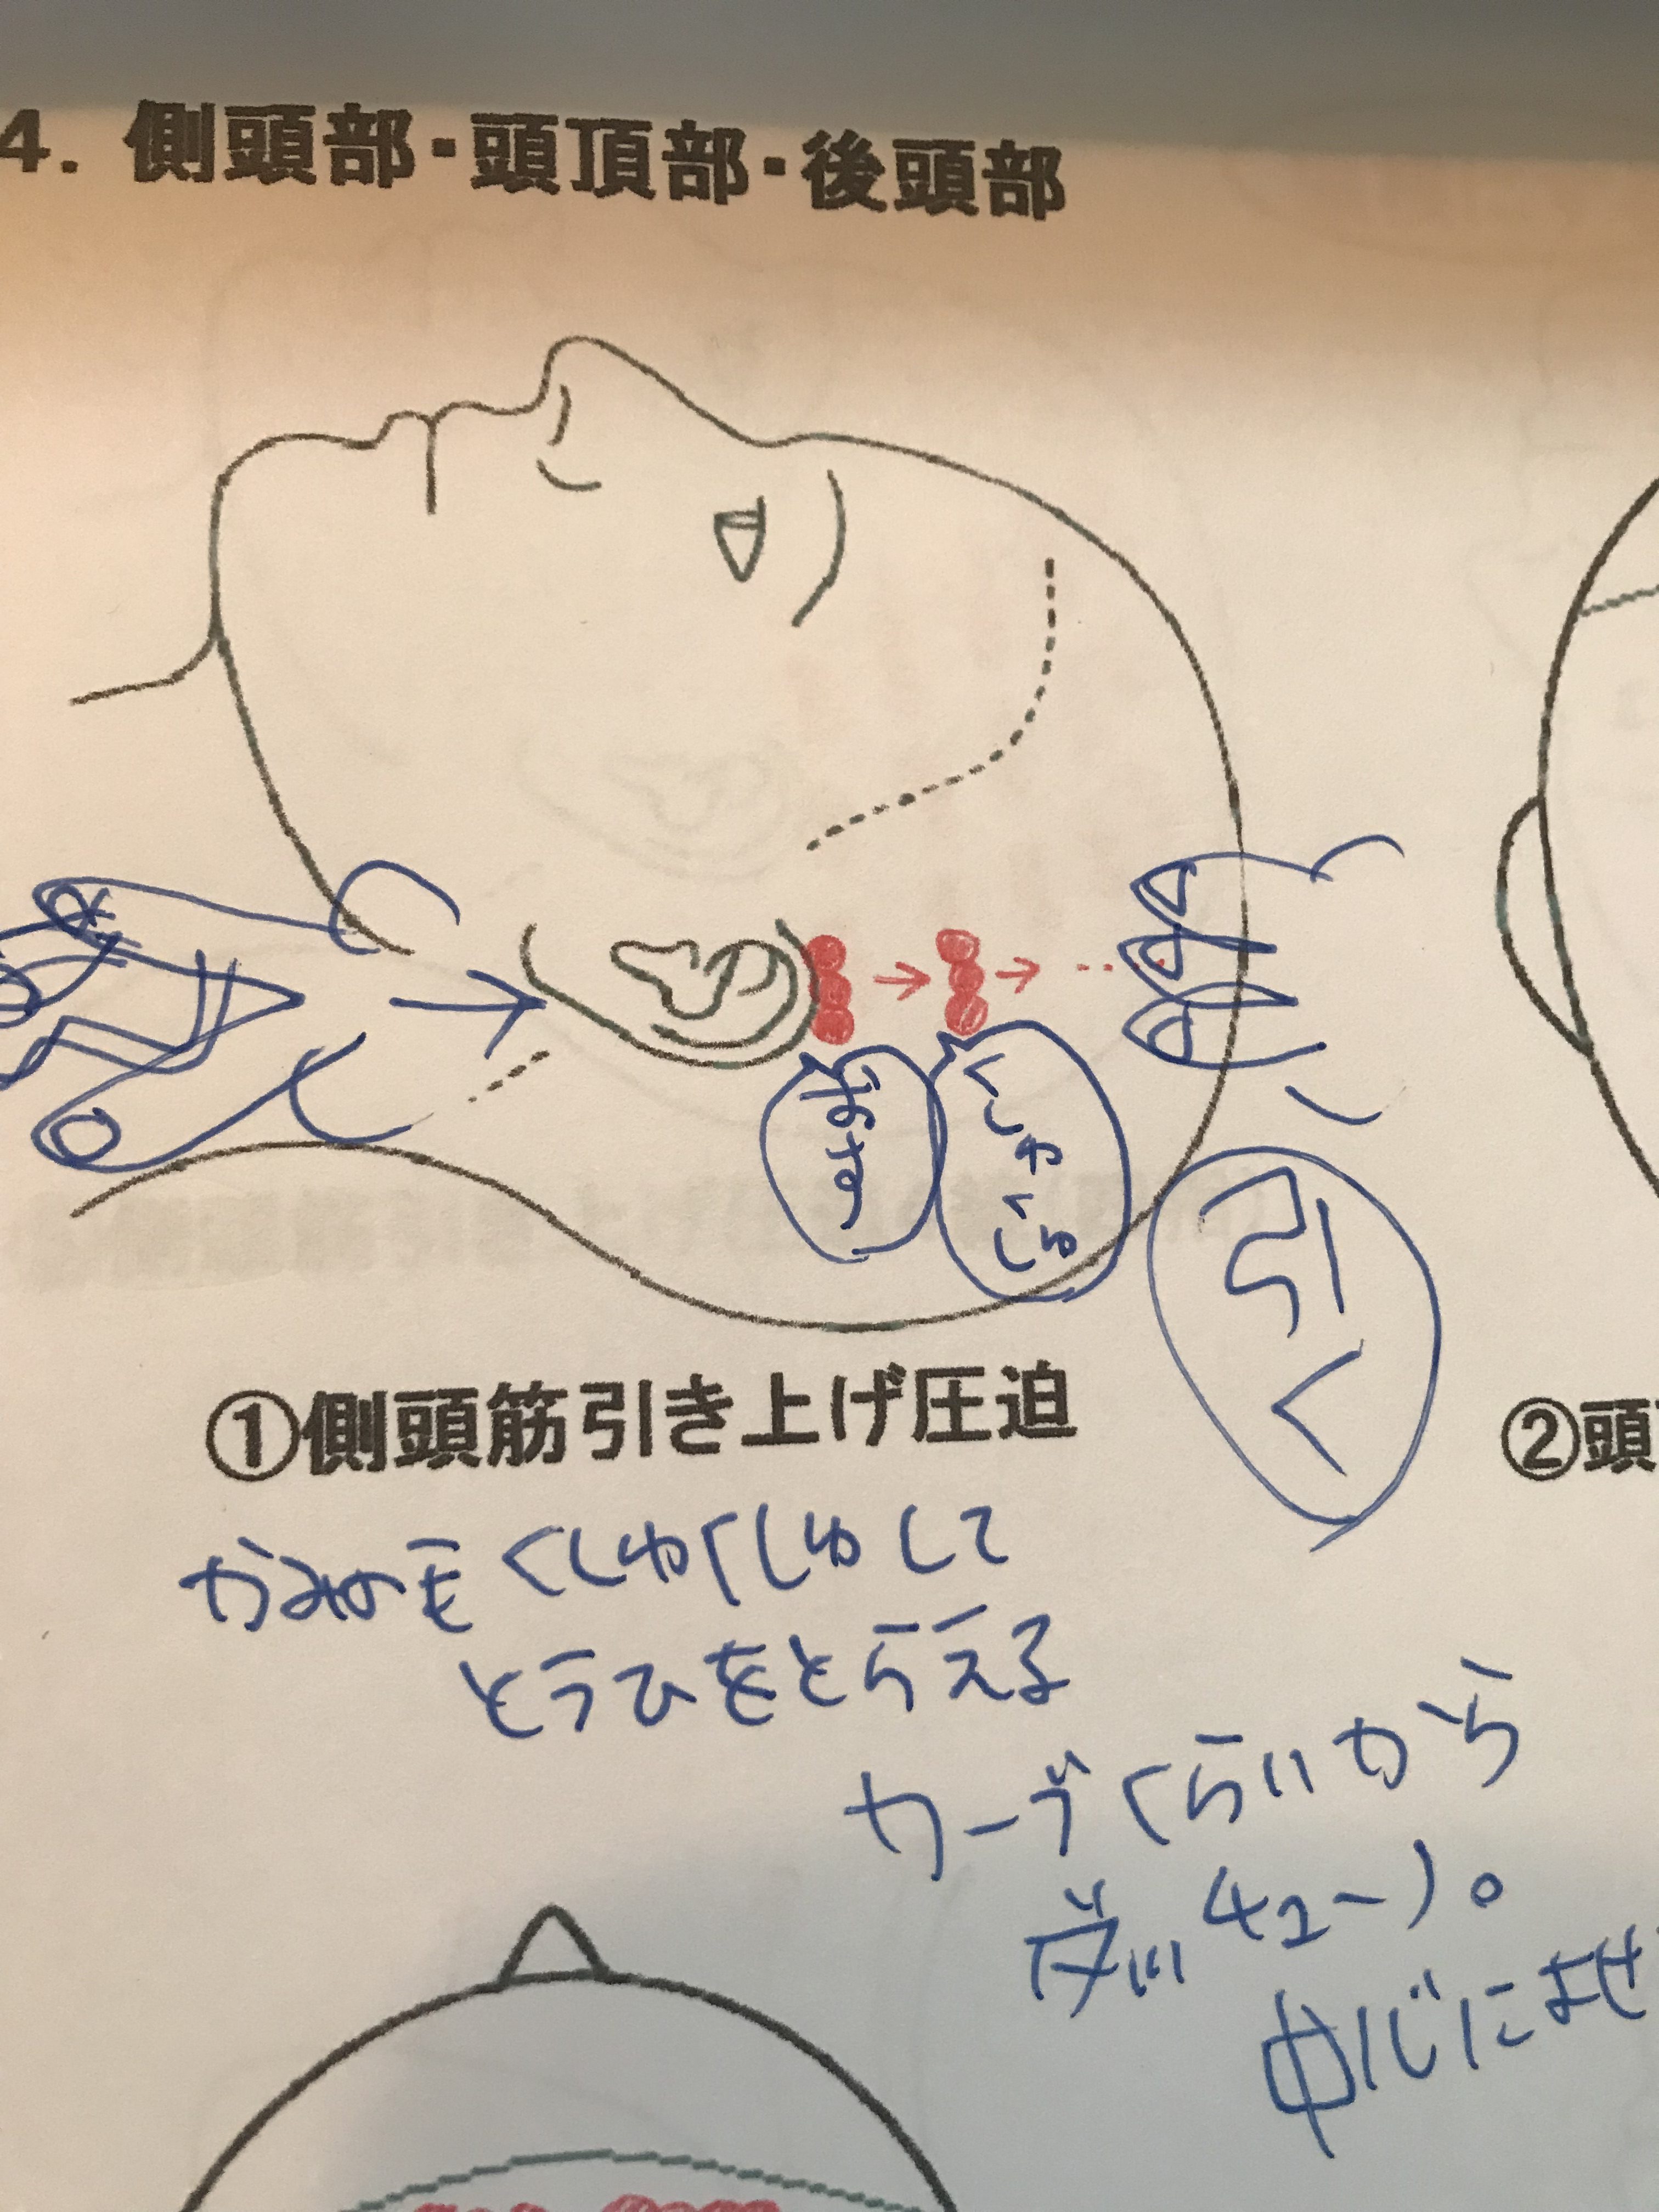 4. 側頭部・頭頂部・後頭部
おす
くしゃくる
引く
①側頭筋引き上げ圧迫
②頭
かみのを くしゅくしゅして
とうひをとらえる
カーブくらいから
キュー)。
中心によせ